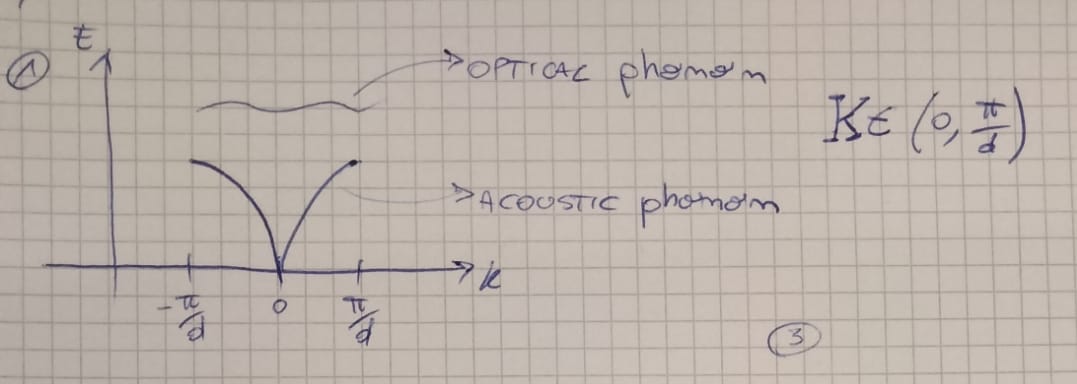 E
① → OPTICAL phonon
K ∈ (0, π/d)
→ ACOUSTIC phonon
k
-π/d 0 π/d
③